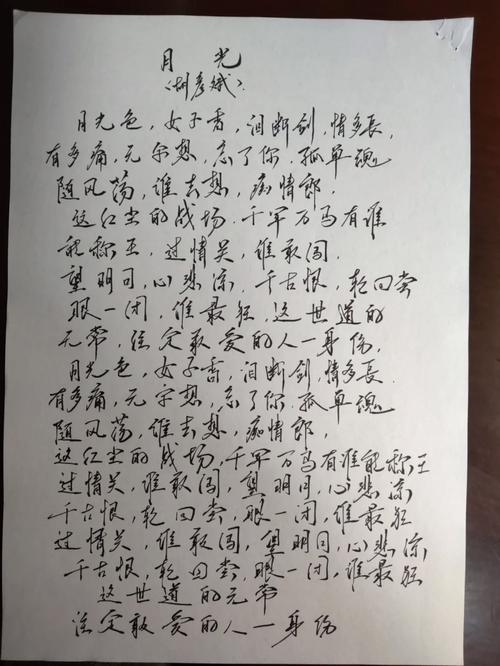 月光
（胡彦斌）
月光色，女子香，泪断剑，情多长，
有多痛，无字想，忘了你，孤单魂
随风荡，谁去想，痴情郎，
这红尘的战场，千军万马有谁
能称王，过情关，谁敢闯，
望明月，心悲凉，千古恨，轮回尝
眼一闭，谁最狂，这世道的
无常，注定敢爱的人一身伤，
月光色，女子香，泪断剑，情多长，
有多痛，无字想，忘了你，孤单魂
随风荡，谁去想，痴情郎，
这红尘的战场，千军万马有谁能称王
过情关，谁敢闯，望明月，心悲凉
千古恨，轮回尝，眼一闭，谁最狂
过情关，谁敢闯，望明月，心悲凉
千古恨，轮回尝，眼一闭，谁最狂
这世道的无常
注定敢爱的人一身伤